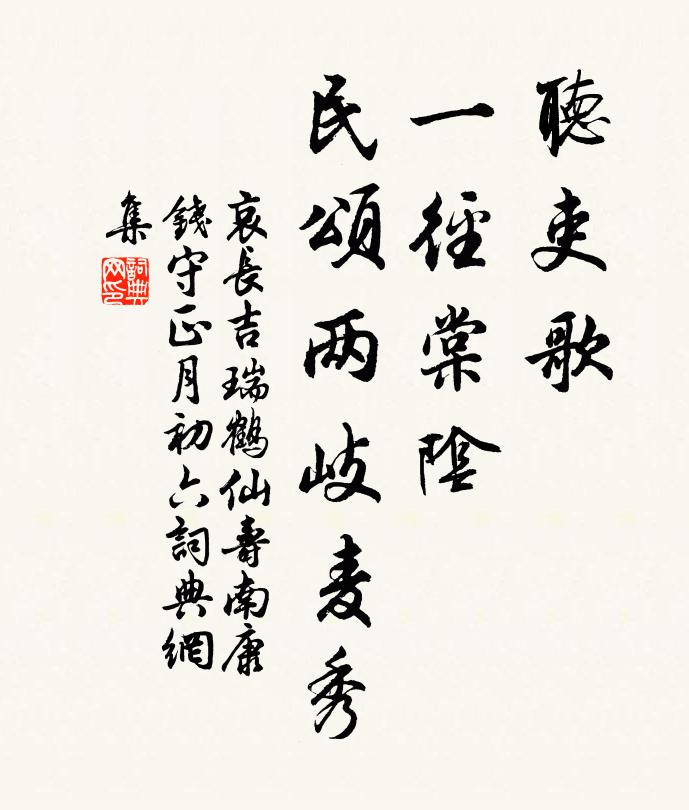 聽吏歌
一徑棠陰
民頌两岐麦秀
哀長吉瑞鶴仙壽南康
錢守正月初六詞典網
集
詞典
网印